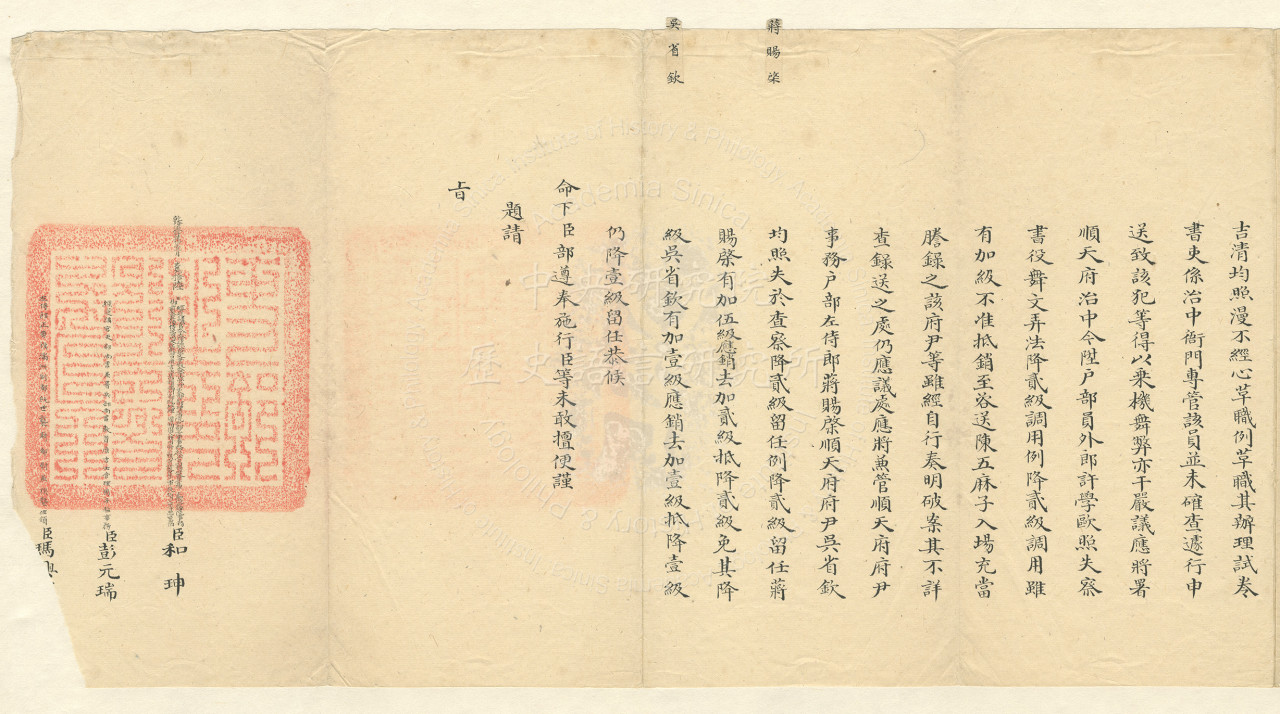 蔣賜棨
吳省欽
吉清均照漫不經心草職例革職其辦理試卷
書吏係治中衙門專管該員並未確查遽行申
送致該犯等得以乘機舞弊亦干嚴議應將署
順天府治中今陞戶部員外郎許學歐照失察
書役舞文弄法降貳級調用例降貳級調用雖
有加級不准抵銷至咨送陳五麻子入場充當
謄錄之該府尹等雖經自行奏明破案其不詳
查錄送之處仍應議處應將兼管順天府府尹
事務戶部左侍郎蔣賜棨順天府府尹吳省欽
均照失於查察降貳級留任例降貳級留任蔣
賜棨有加伍級應銷去加貳級抵降貳級免其降
級吳省欽有加壹級應銷去加壹級抵降壹級
仍降壹級留任恭候
命下臣部遵奉施行臣等未敢擅便謹
題請
旨
臣和珅
臣彭元瑞
臣瑪興
中央研究院
歷史語言研究所
Academia Sinica
Institute of History & Philology